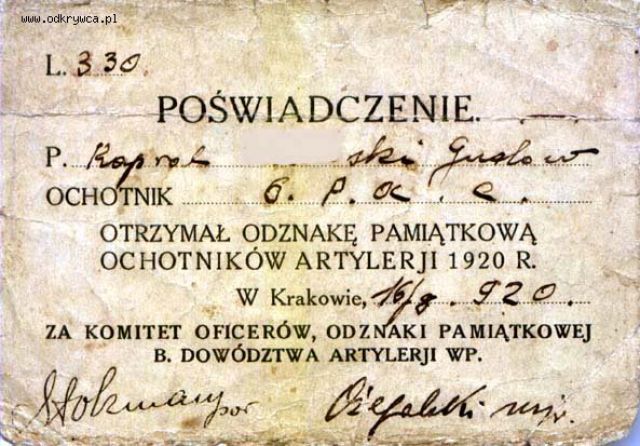 www.odkrywca.pl
L. 330.
POŚWIADCZENIE.
P. Kapral ski Gustaw
OCHOTNIK 6. p. a. c.
OTRZYMAŁ ODZNAKĘ PAMIĄTKOWĄ
OCHOTNIKÓW ARTYLERJI 1920 R.
W Krakowie, 16/8. 920.
ZA KOMITET OFICERÓW, ODZNAKI PAMIĄTKOWEJ
B. DOWÓDZTWA ARTYLERJI WP.
por mjr.